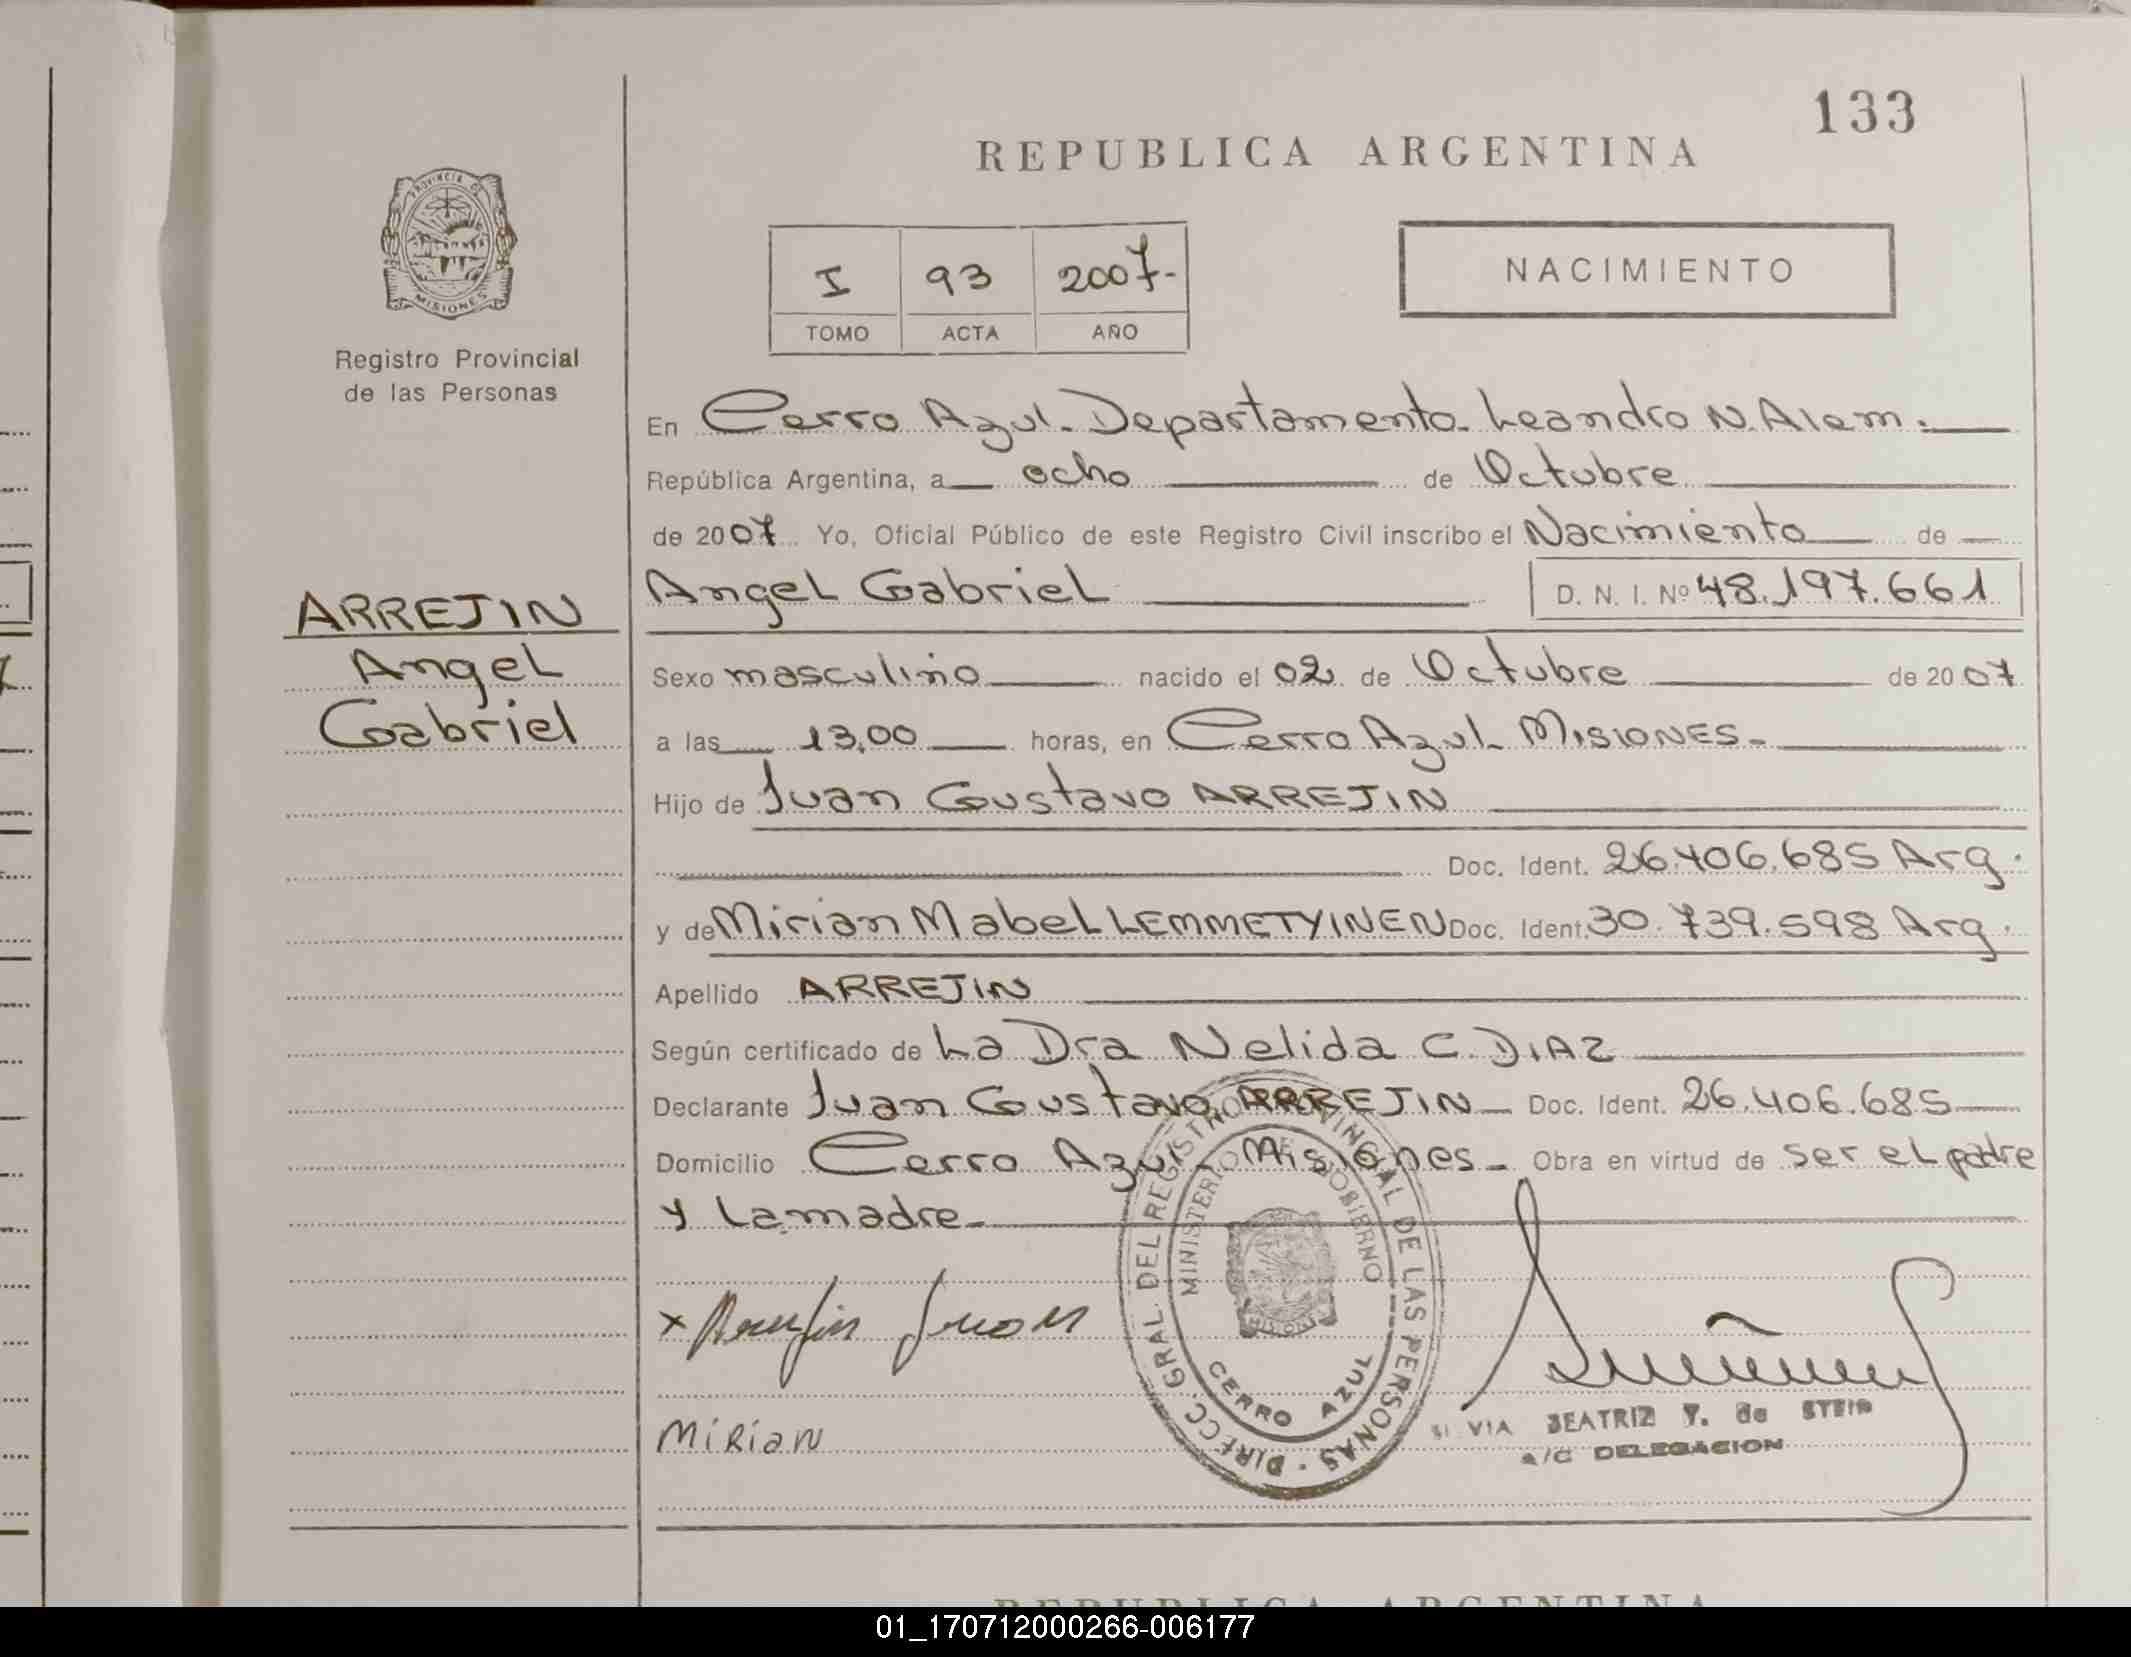 133
REPUBLICA ARGENTINA
PROVINCIA DE
MISIONES
Registro Provincial
de las Personas
I 93 2007-
TOMO ACTA AÑO
NACIMIENTO
En Cerro Azul. Departamento. Leandro N. Alem.
República Argentina, a ocho de Octubre
de 2007 Yo, Oficial Público de este Registro Civil inscribo el Nacimiento de
Angel Gabriel D. N. I. Nº 48.197.661
ARREJIN
Angel
Gabriel
Sexo masculino nacido el 02 de Octubre de 2007
a las 13,00 horas, en Cerro Azul. MISIONES-
Hijo de Juan Gustavo ARREJIN
Doc. Ident. 26.406.685 Arg.
y de Mirian Mabel LEMMETYINEN Doc. Ident. 30.739.598 Arg.
Apellido ARREJIN
Según certificado de La Dra Nelida C. DIAZ
Declarante Juan Gustavo ARREJIN Doc. Ident. 26.406.685
Domicilio Cerro Azul - Misiones - Obra en virtud de ser el padre
y la madre-
DIRECC. GRAL. DEL REGISTRO PROVINCIAL DE LAS PERSONAS -
MINISTERIO DE GOBIERNO
MISIONES
CERRO AZUL
x Arrejin Juan
Mirian
BEATRIZ Y. de STEIN
A/C DELEGACION
REPUBLICA ARGENTINA
01_170712000266-006177